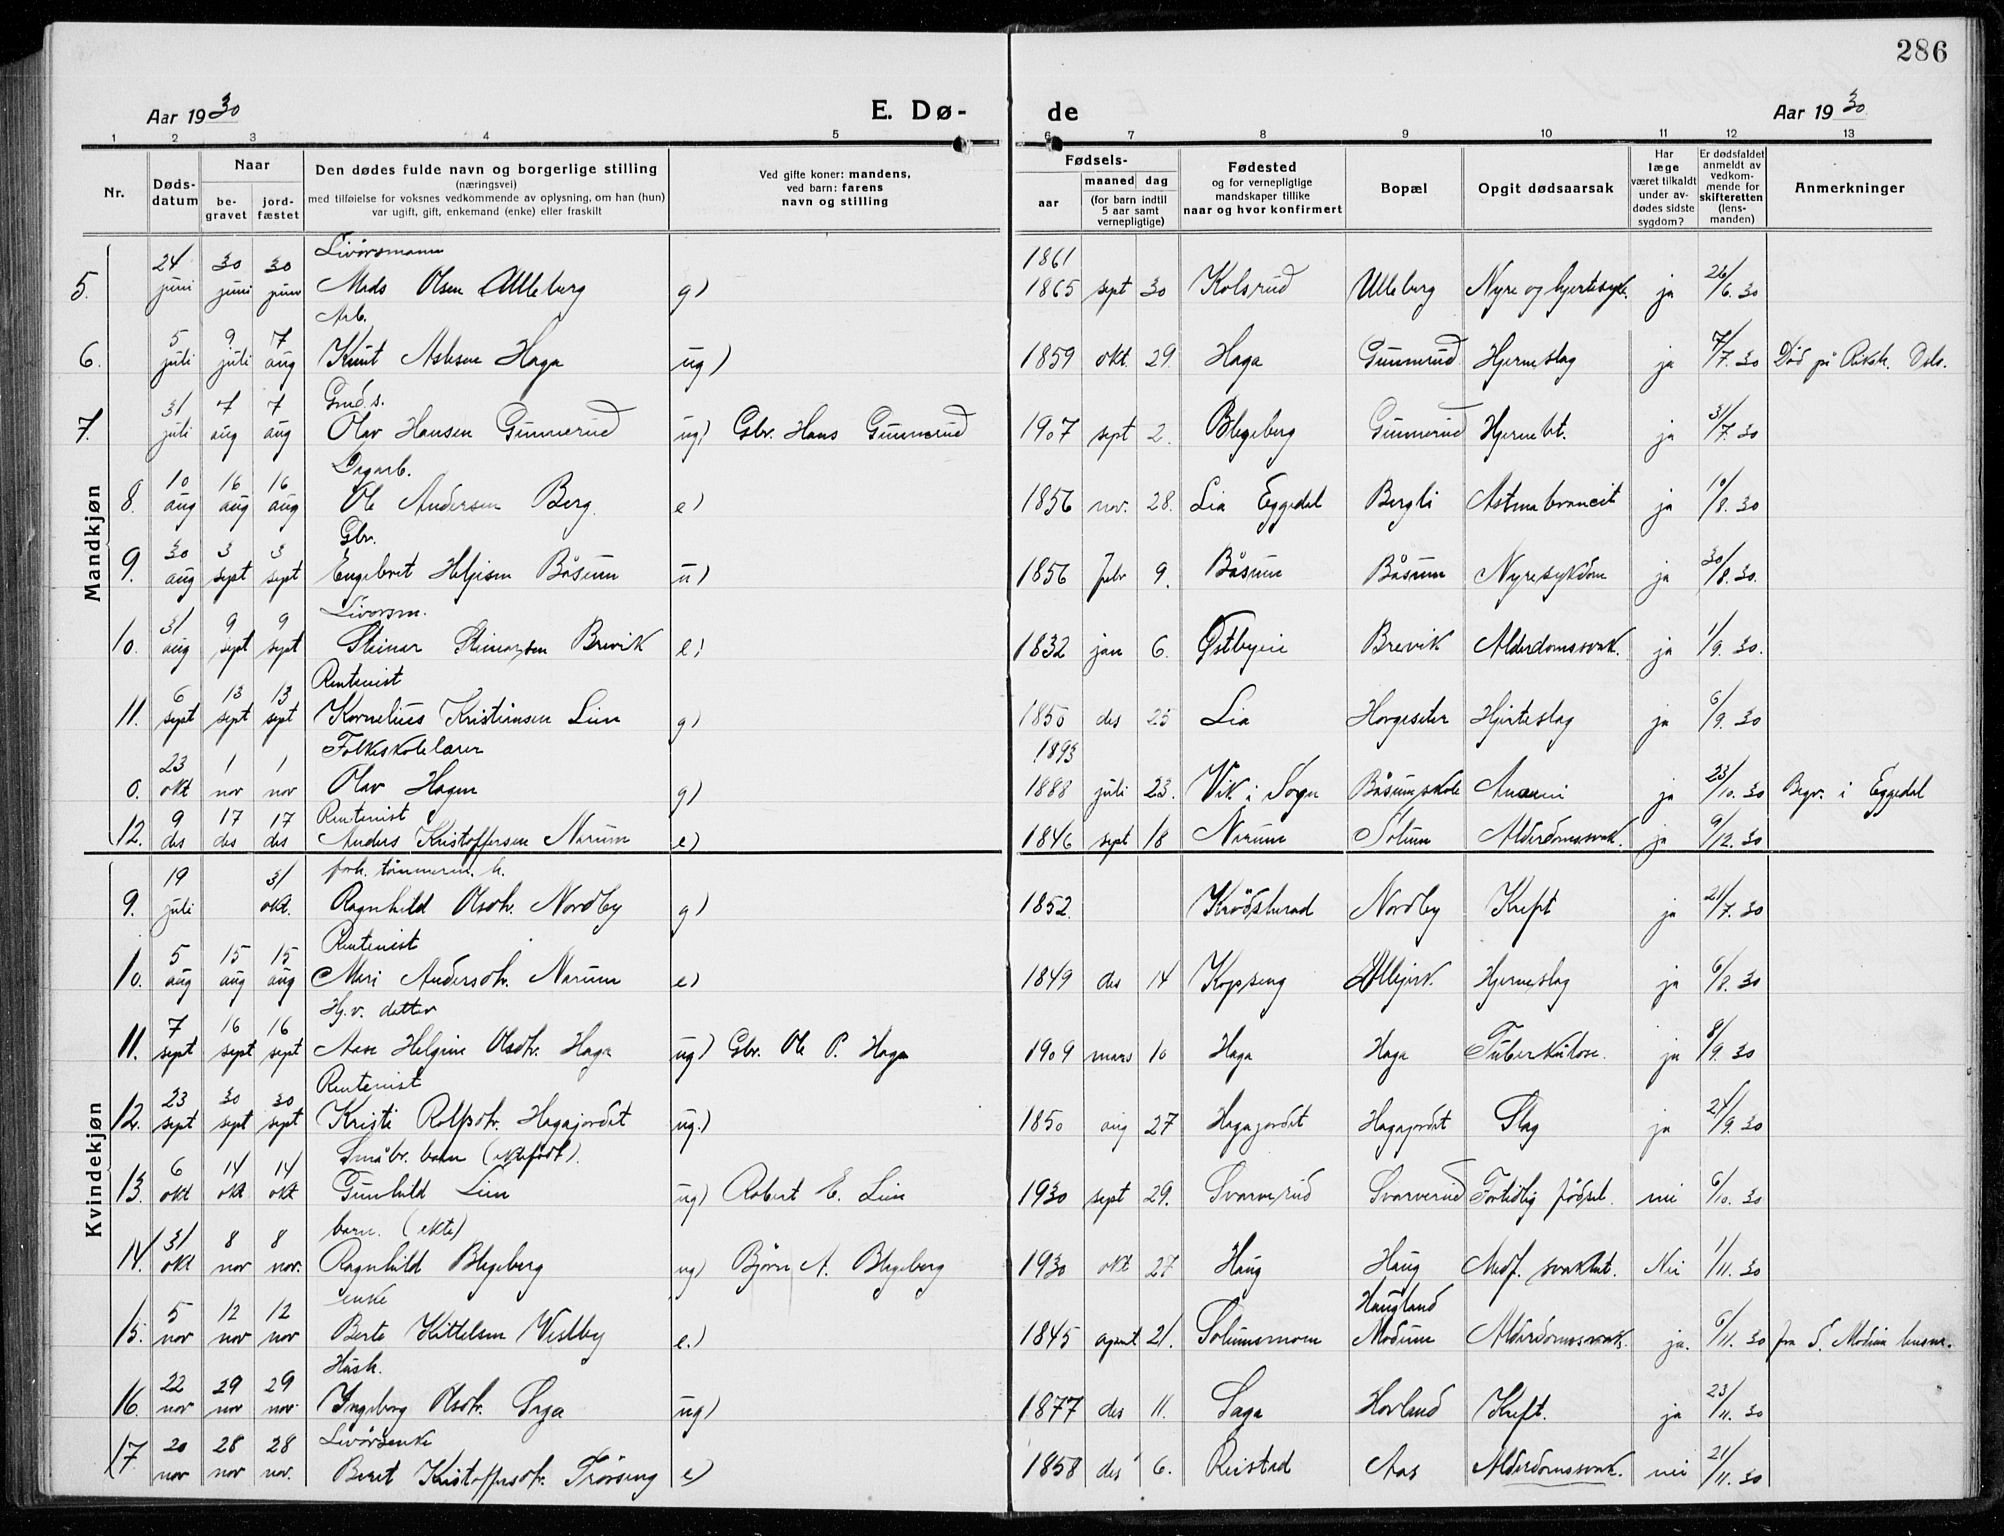 286
Aar 1930 E. Dø- de Aar 1930
1 2 3 4 5 6 7 8 9 10 11 12 13
Nr.
Døds-datum
Naar
be-gravet
jord-fæstet
Den dødes fulde navn og borgerlige stilling
(næringsvei)
med tilføielse for voksnes vedkommende av oplysning, om han (hun)
var ugift, gift, enkemand (enke) eller fraskilt
Ved gifte koner: mandens,
ved barn: farens
navn og stilling
Fødsels-
aar
maaned dag
(for barn indtil
5 aar samt
vernepligtige)
Fødested
og for vernepligtige
mandskaper tillike
naar og hvor konfirmert
Bopæl
Opgit dødsaarsak
Har
læge
været tilkaldt
under av-
dødes sidste
sygdom?
Er dødsfaldet
anmeldt av
vedkom-
mende for
skifteretten
(lens-
manden)
Anmerkninger
Mandkjøn
Livørsmann 1861
5. 24 juni 30 juni 30 juni Mads Olsen Ulleberg g) 1865 sept 30 Kolsrud Ulleberg Nyre og hjertesyk. ja 26/6. 30
Arb.
6. 5 juli 9 juli 7 aug Knut Aslesen Haga ug) 1859 okt. 29. Haga Gunnerud Hjerneslag ja 7/7. 30 Død på Riksh. Oslo.
Grud.s.
7. 31 juli 7 aug 7 aug Olav Hansen Gunnerud ug) Gbr. Hans Gunnerud 1907 sept 2. Blegeberg Gunnerud Hjernebet. ja 31/7. 30
Dagarb.
8. 10 aug 16 aug 16 aug Ole Andersen Berg. e) 1856 nov. 28. Lia Eggedal Bergli Astma broncit ja 10/8. 30
Gbr.
9. 30 aug 3 sept 3 sept Engebret Helgisen Båsum u) 1856 febr 9. Båsum Båsum Nyresykdom ja 30/8. 30.
Livørsm.
10. 31 aug 9 sept 9 sept Steinar Steinarsen Brevik e) 1832 jan 6. Østbyeie Brevik Alderdomssvak. ja 1/9. 30.
Rentenist
11. 6 sept 13 sept 13 sept Kornelius Kristiansen Lien g) 1850 des 25 Lia Horgeseter Hjerteslag ja 6/9. 30
Folkeskolelærer 1893
0. 23 okt 1 nov 1 nov Olav Hagen g) 1888 juli 23. Vik i Sogn Båsum skole Anæmi ja 23/10. 30 Begr. i Eggedal
Rentenist
12. 9 des 17 des 17 des Anders Kristoffersen Narum e) 1846 sept 18 Narum Solum Alderdomssvak. ja 9/12. 30
Kvindekjøn
forh. tømmerm. h.
9. 19 juli 31 okt. Ragnhild Olsdtr. Nordby g) 1852. Krødsherad Nordby Kreft ja 21/7. 30
Rentenist
10. 5 aug 15 aug 15 aug Mari Andersdtr. Narum e) 1849 des 14 Kopseng Hjerneslag ja 6/8. 30
Hj.v. datter
11. 7 sept 16 sept 16 sept Aase Helgine Olsdtr. Haga ug) Gbr. Ole P. Haga 1909 mars 10 Haga Haga Tuberkulose. ja 8/9. 30
Rentenist
12. 23 sept 30 sept 30 sept Kristi Rolfsdtr. Hagajordet ug.) 1850 aug 27 Hagajordet Hagajordet Slag ja 24/9. 30
Småbr. barn (ektefødt).
13. 6 okt 14 okt 14 okt Gunhild Lien ug) Robert E. Lien 1930 sept 29. Svarverud Svarverud Fortidlig fødsel. nei 6/10. 30
barn. (ekte)
14. 31 okt 8 nov 8 nov. Ragnhild Blegeberg ug) Bjørn A. Blegeberg 1930 okt 27 Haug Haug Medf. svakhet. Nei 1/11. 30
enke Haugland
15. 5 nov 12 nov 12 nov Berte Kittelsen Vestby e.) 1845 august 21. Solumsmoen Modum Alderdomssvak. ja. 6/11. 30 fra S. Modum
Hush.
16. 22 nov 29 nov 29 nov. Ingeborg Olsdtr. Saga ug) 1877 des 11. Saga Hovland Kreft. ja 23/11. 30
Livørsenke
17. 20 nov 28 nov 28 nov. Beret Kristoffersdtr. Trøseng e) 1858 des 6. Reistad Aas Alderdomssvak. nei 21/11. 30